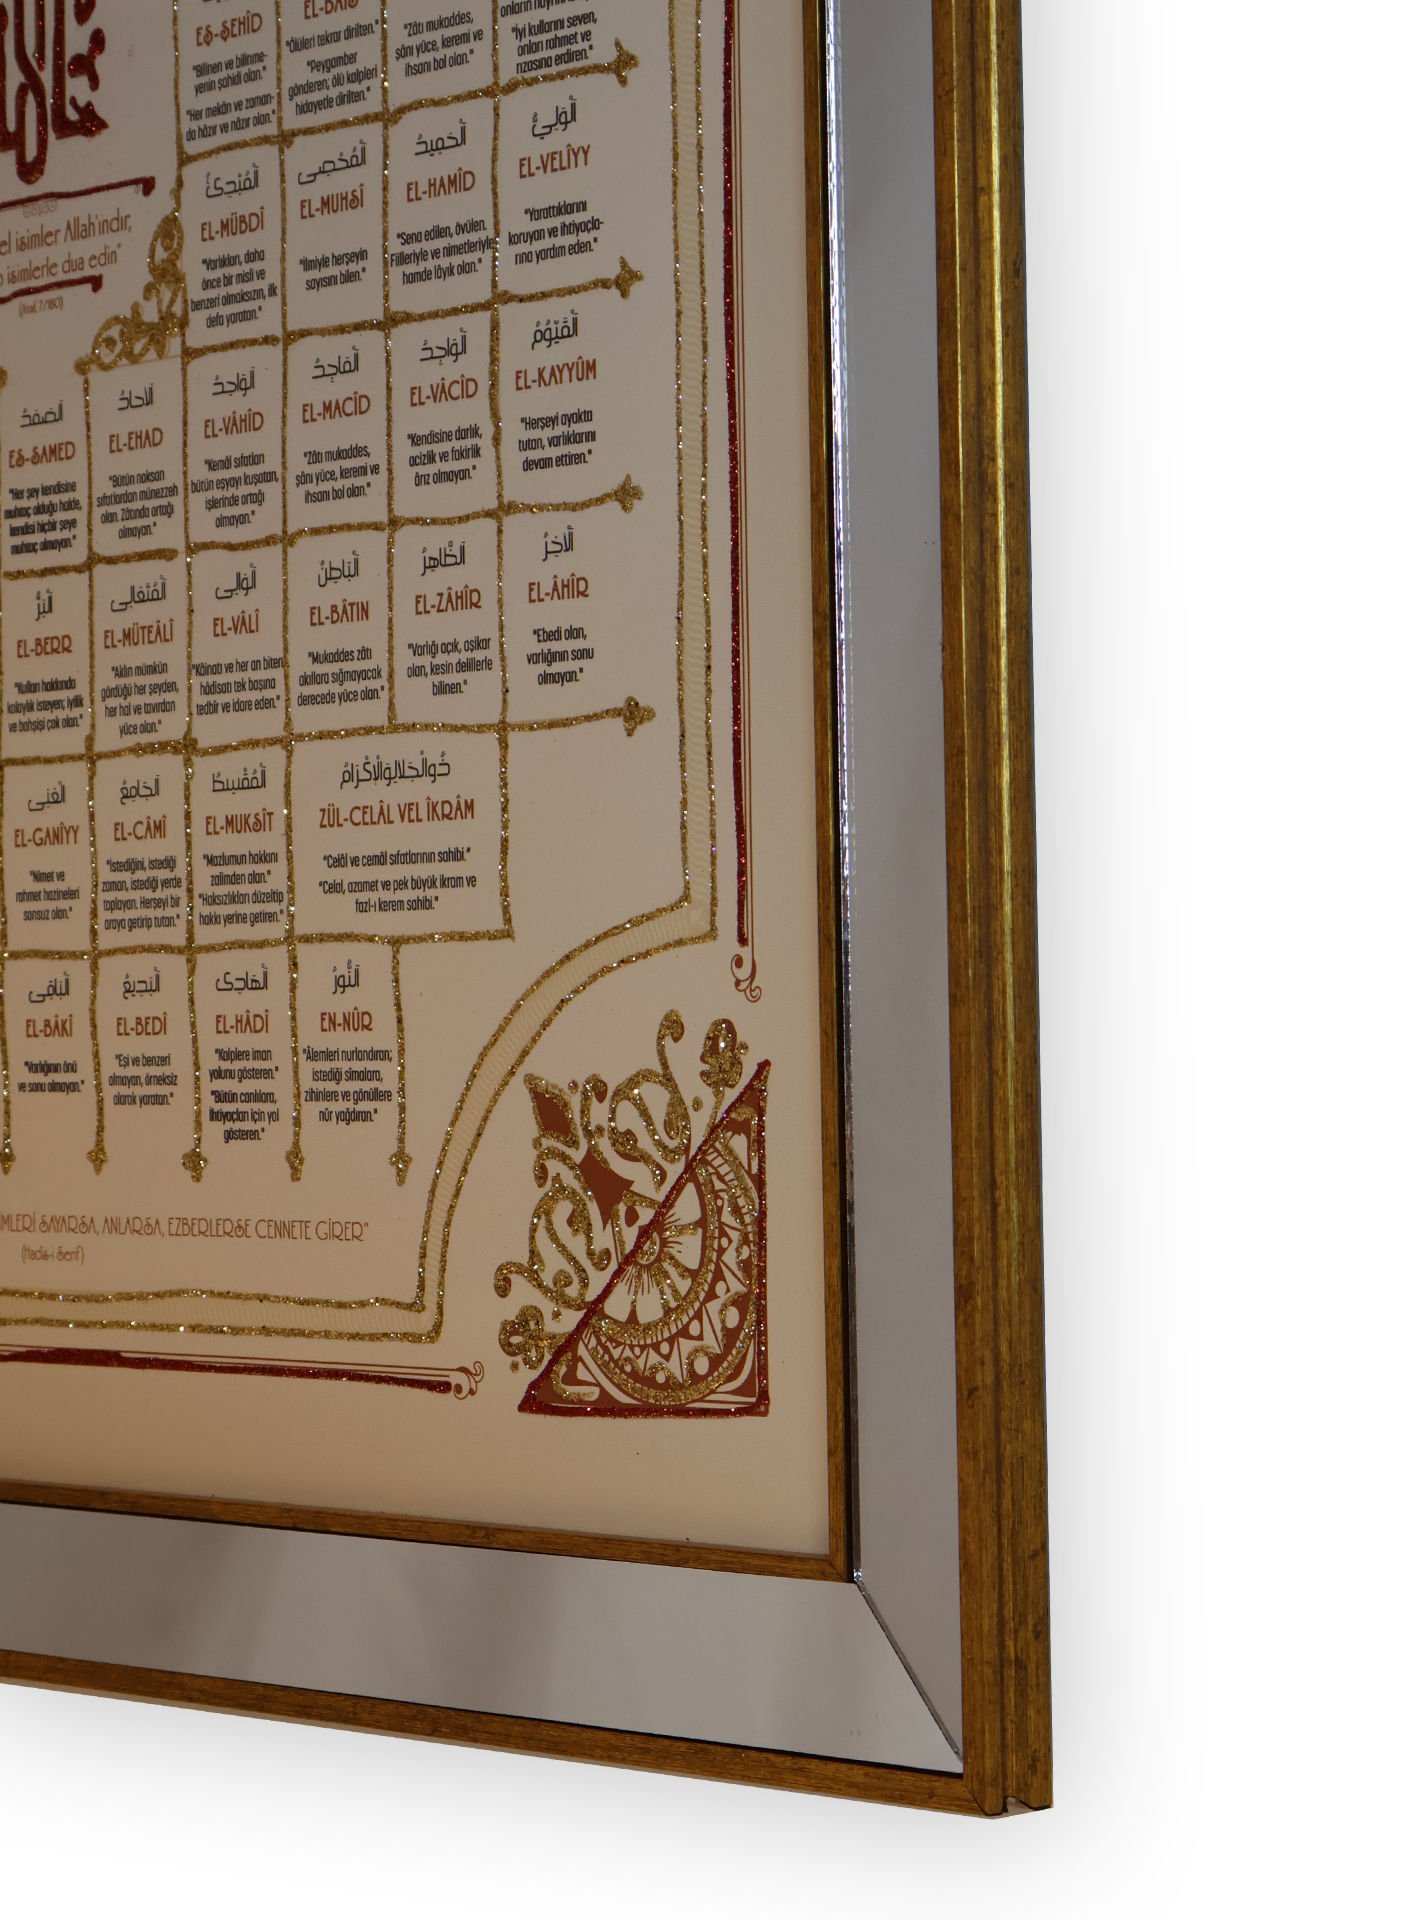 EŞ-ŞEHÎD
"Bilinen ve bilinme-
yenin şahidi olan."
"Her mekân ve zaman-
da hâzır ve nâzır olan."
EL-BÂİS
"Ölüleri tekrar dirilten."
"Peygamber
gönderen; ölü kalpleri
hidayetle dirilten."
"Zâtı mukaddes,
şânı yüce, keremi ve
ihsanı bol olan."
"İyi kullarını seven,
onları rahmet ve
rızasına erdiren."
اَلْمُبْدِئُ
EL-MÜBDÎ
"Varlıkları, daha
önce bir misli ve
benzeri olmaksızın, ilk
defa yaratan."
اَلْمُحْصِى
EL-MUHSÎ
"İlmiyle herşeyin
sayısını bilen."
اَلْحَمِيدُ
EL-HAMÎD
"Sena edilen, övülen.
Fiilleriyle ve nimetleriyle
hamde lâyık olan."
اَلْوَلِيُّ
EL-VELÎYY
"Yarattıklarını
koruyan ve ihtiyaçla-
rına yardım eden."
el isimler Allah'ındır,
isimlerle dua edin"
(Araf, 7/180)
اَلصَّمَدُ
ES-SAMED
"Her şey kendisine
muhtaç olduğu halde,
kendisi hiçbir şeye
muhtaç olmayan."
اَلْاَحَدُ
EL-EHAD
"Bütün noksan
sıfatlardan münezzeh
olan. Zâtında ortağı
olmayan."
اَلْوَاحِدُ
EL-VÂHÎD
"Kemâl sıfatları
bütün eşyayı kuşatan,
işlerinde ortağı
olmayan."
اَلْمَاجِدُ
EL-MACÎD
"Zâtı mukaddes,
şânı yüce, keremi ve
ihsanı bol olan."
اَلْوَاجِدُ
EL-VÂCÎD
"Kendisine darlık,
acizlik ve fakirlik
ârız olmayan."
اَلْقَيُّومُ
EL-KAYYÛM
"Herşeyi ayakta
tutan, varlıklarını
devam ettiren."
اَلْبَرُّ
EL-BERR
"Kulları hakkında
kolaylık isteyen; iyilik
ve bahşişi çok olan."
اَلْمُتَعَالِى
EL-MÜTEÂLÎ
"Aklın mümkün
gördüğü her şeyden,
her hal ve tavırdan
yüce olan."
اَلْوَالِى
EL-VÂLÎ
"Kâinatı ve her an biten
hâdisatı tek başına
tedbîr ve idare eden."
اَلْبَاطِنُ
EL-BÂTIN
"Mukaddes zâtı
akıllara sığmayacak
derecede yüce olan."
اَلظَّاهِرُ
EL-ZÂHÎR
"Varlığı açık, aşikar
olan, kesin delillerle
bilinen."
اَلْاٰخِرُ
EL-ÂHÎR
"Ebedi olan,
varlığının sonu
olmayan."
اَلْغَنِى
EL-GANÎYY
"Nimet ve
rahmet hazineleri
sonsuz olan."
اَلْجَامِعُ
EL-CÂMÎ
"İstediğini, istediği
zaman, istediği yerde
toplayan. Herşeyi bir
araya getirip tutan."
اَلْمُقْسِطُ
EL-MUKSÎT
"Mazlumun hakkını
zalimden alan."
"Haksızlıkları düzeltip
hakkı yerine getiren."
ذُوالْجَلَالِوَالْاِكْرَامُ
ZÜL-CELÂL VEL ÎKRÂM
"Celâl ve cemâl sıfatlarının sahibi."
"Celal, azamet ve pek büyük ikram ve
fazl-ı kerem sahibi."
اَلْبَاقِى
EL-BÂKÎ
"Varlığının önü
ve sonu olmayan."
اَلْبَدِيعُ
EL-BEDÎ
"Eşi ve benzeri
olmayan, örneksiz
olarak yaratan."
اَلْهَادِى
EL-HÂDÎ
"Kalplere iman
yolunu gösteren."
"Bütün canlılara,
ihtiyaçları için yol
gösteren."
اَلنُّورُ
EN-NÛR
"Âlemleri nurlandıran;
istediği sîmalara,
zihinlere ve gönüllere
nûr yağdıran."
İMLERİ SAYARSA, ANLARSA, EZBERLERSE CENNETE GİRER"
(Hadis-i Şerif)